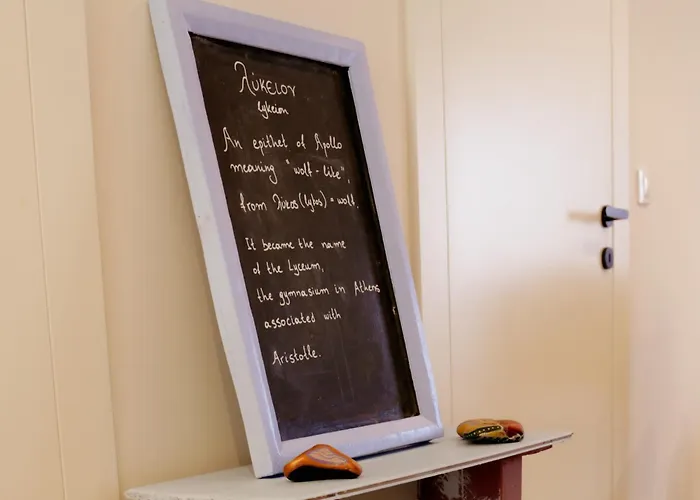 λύκειον
lykeion
An epithet of Apollo
meaning "wolf-like",
from λύκος (lykos) = wolf.
It became the name
of the Lyceum,
the gymnasium in Athens
associated with
Aristotle.